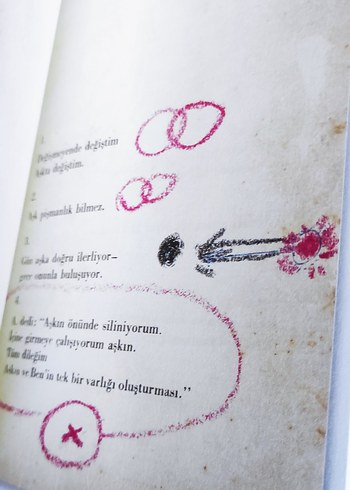 1.
Değişmeyende değiştim
Aşkta değiştim.
2.
Aşk pişmanlık bilmez.
3.
Gün aşka doğru ilerliyor–
gece onunla buluşuyor.
4.
A. dedi: "Aşkın önünde siliniyorum.
İçine girmeye çalışıyorum aşkın.
Tüm dileğim
Aşkın ve Ben'in tek bir varlığı oluşturması."